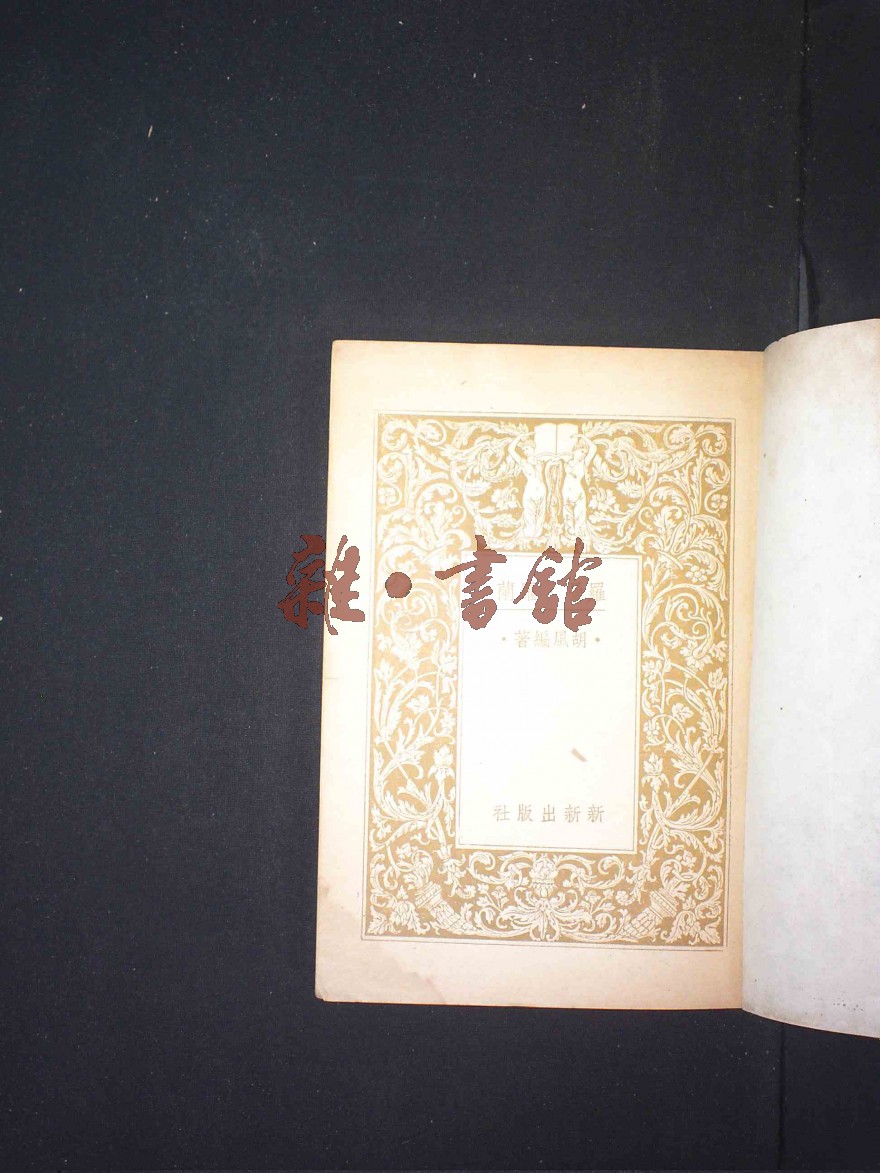 羅 蘭
•胡風編著•
新新出版社
雜•書館